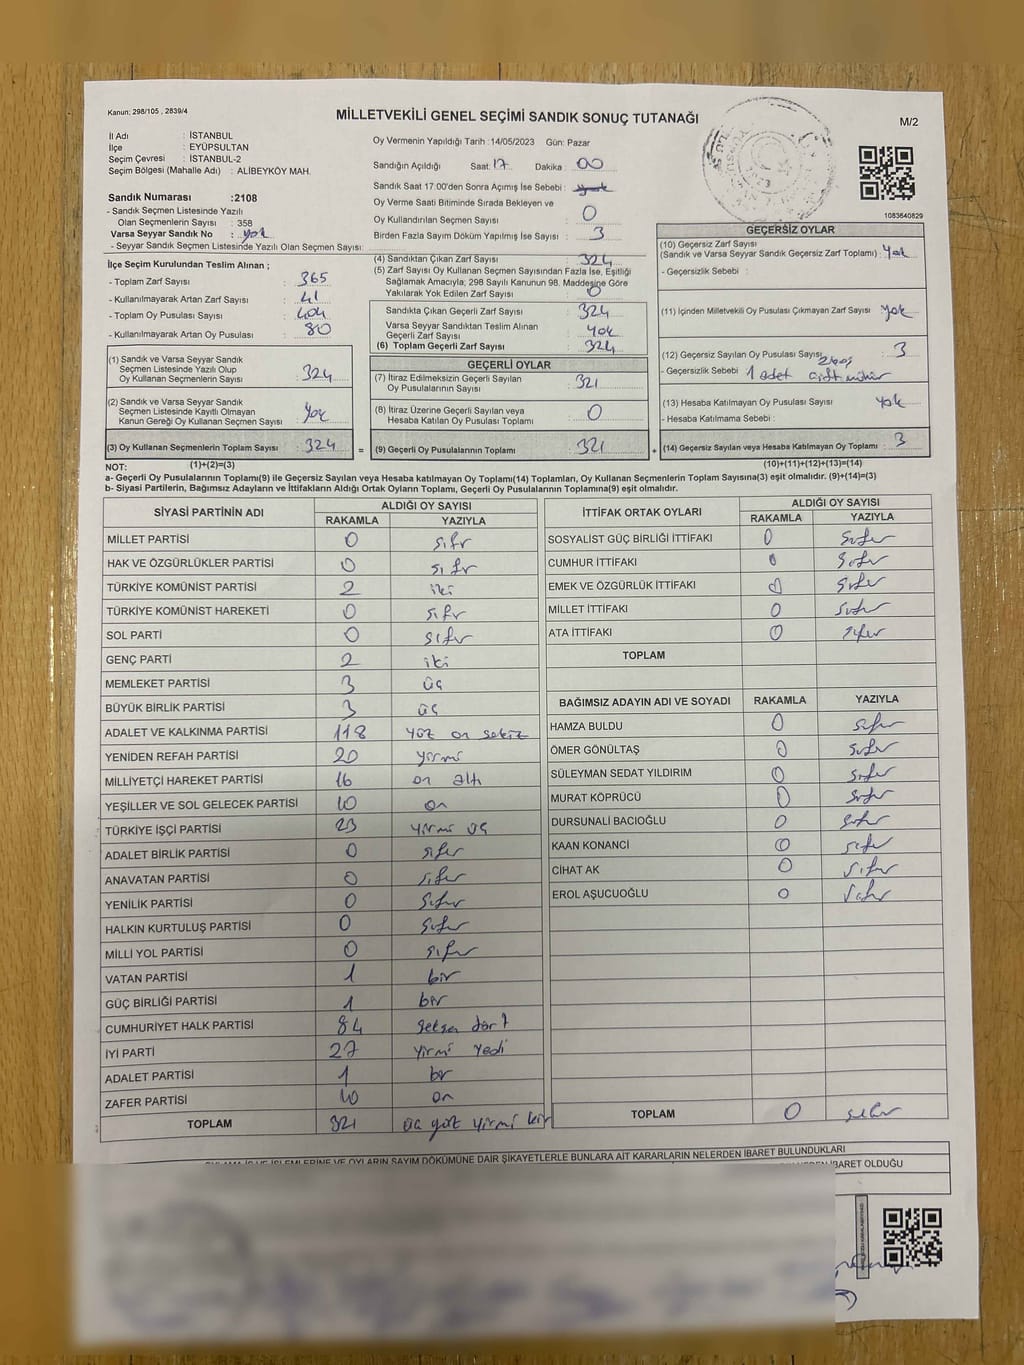 Kanun: 298/105 , 2839/4
MİLLETVEKİLİ GENEL SEÇİMİ SANDIK SONUÇ TUTANAĞI
M/2
İl Adı : İSTANBUL
İlçe : EYÜPSULTAN
Seçim Çevresi : İSTANBUL-2
Seçim Bölgesi (Mahalle Adı) : ALİBEYKÖY MAH.
Sandık Numarası :2108
- Sandık Seçmen Listesinde Yazılı
Olan Seçmenlerin Sayısı : 358
Varsa Seyyar Sandık No : yok
- Seyyar Sandık Seçmen Listesinde Yazılı Olan Seçmen Sayısı:
Oy Vermenin Yapıldığı Tarih :14/05/2023 Gün: Pazar
Sandığın Açıldığı Saat: 17 Dakika : 00
Sandık Saat 17.00'den Sonra Açımış İse Sebebi : yok
Oy Verme Saati Bitiminde Sırada Bekleyen ve
Oy Kullandırılan Seçmen Sayısı : 0
Birden Fazla Sayım Döküm Yapılmış İse Sayısı : 3
1083640829
İlçe Seçim Kurulundan Teslim Alınan ;
- Toplam Zarf Sayısı : 365
- Kullanılmayarak Artan Zarf Sayısı : 41
- Toplam Oy Pusulası Sayısı : 404
- Kullanılmayarak Artan Oy Pusulası : 80
(1) Sandık ve Varsa Seyyar Sandık
Seçmen Listesinde Yazılı Olup
Oy Kullanan Seçmenlerin Sayısı : 324
(2) Sandık ve Varsa Seyyar Sandık
Seçmen Listesinde Kayıtlı Olmayan
Kanun Gereği Oy Kullanan Seçmen Sayısı : yok
(3) Oy Kullanan Seçmenlerin Toplam Sayısı : 324 =
(4) Sandıktan Çıkan Zarf Sayısı : 324
(5) Zarf Sayısı Oy Kullanan Seçmen Sayısından Fazla İse, Eşitliği
Sağlamak Amacıyla; 298 Sayılı Kanunun 98. Maddesine Göre
Yakılarak Yok Edilen Zarf Sayısı : 0
Sandıkta Çıkan Geçerli Zarf Sayısı : 324
Varsa Seyyar Sandıktan Teslim Alınan
Geçerli Zarf Sayısı : yok
(6) Toplam Geçerli Zarf Sayısı : 324
GEÇERLİ OYLAR
(7) İtiraz Edilmeksizin Geçerli Sayılan
Oy Pusulalarının Sayısı : 321
(8) İtiraz Üzerine Geçerli Sayılan veya
Hesaba Katılan Oy Pusulası Toplamı : 0
(9) Geçerli Oy Pusulalarının Toplamı : 321 +
GEÇERSİZ OYLAR
(10) Geçersiz Zarf Sayısı
(Sandık ve Varsa Seyyar Sandık Geçersiz Zarf Toplamı) : yok
- Geçersizlik Sebebi :
(11) İçinden Milletvekili Oy Pusulası Çıkmayan Zarf Sayısı : yok
(12) Geçersiz Sayılan Oy Pusulası Sayısı : 3
2 boş
- Geçersizlik Sebebi : 1 adet çift mühür
(13) Hesaba Katılmayan Oy Pusulası Sayısı : yok
- Hesaba Katılmama Sebebi :
(14) Geçersiz Sayılan veya Hesaba Katılmayan Oy Toplamı : 3
NOT: (1)+(2)=(3)
(10)+(11)+(12)+(13)=(14)
a- Geçerli Oy Pusulalarının Toplamı(9) ile Geçersiz Sayılan veya Hesaba katılmayan Oy Toplamı(14) Toplamları, Oy Kullanan Seçmenlerin Toplam Sayısına(3) eşit olmalıdır. (9)+(14)=(3)
b- Siyasi Partilerin, Bağımsız Adayların ve İttifakların Aldığı Ortak Oyların Toplamı, Geçerli Oy Pusulalarının Toplamına(9) eşit olmalıdır.
SİYASİ PARTİNİN ADI ALDIĞI OY SAYISI
RAKAMLA YAZIYLA
MİLLET PARTİSİ 0 sıfır
HAK VE ÖZGÜRLÜKLER PARTİSİ 0 sıfır
TÜRKİYE KOMÜNİST PARTİSİ 2 iki
TÜRKİYE KOMÜNİST HAREKETİ 0 sıfır
SOL PARTİ 0 sıfır
GENÇ PARTİ 2 iki
MEMLEKET PARTİSİ 3 üç
BÜYÜK BİRLİK PARTİSİ 3 üç
ADALET VE KALKINMA PARTİSİ 118 yüz on sekiz
YENİDEN REFAH PARTİSİ 20 yirmi
MİLLİYETÇİ HAREKET PARTİSİ 16 on altı
YEŞİLLER VE SOL GELECEK PARTİSİ 10 on
TÜRKİYE İŞÇİ PARTİSİ 23 yirmi üç
ADALET BİRLİK PARTİSİ 0 sıfır
ANAVATAN PARTİSİ 0 sıfır
YENİLİK PARTİSİ 0 sıfır
HALKIN KURTULUŞ PARTİSİ 0 sıfır
MİLLİ YOL PARTİSİ 0 sıfır
VATAN PARTİSİ 1 bir
GÜÇ BİRLİĞİ PARTİSİ 1 bir
CUMHURİYET HALK PARTİSİ 84 seksen dört
İYİ PARTİ 27 yirmi yedi
ADALET PARTİSİ 1 bir
ZAFER PARTİSİ 10 on
TOPLAM 321 üç yüz yirmi bir
İTTİFAK ORTAK OYLARI ALDIĞI OY SAYISI
RAKAMLA YAZIYLA
SOSYALİST GÜÇ BİRLİĞİ İTTİFAKI 0 sıfır
CUMHUR İTTİFAKI 0 sıfır
EMEK VE ÖZGÜRLÜK İTTİFAKI 0 sıfır
MİLLET İTTİFAKI 0 sıfır
ATA İTTİFAKI 0 sıfır
TOPLAM
BAĞIMSIZ ADAYIN ADI VE SOYADI RAKAMLA YAZIYLA
HAMZA BULDU 0 sıfır
ÖMER GÖNÜLTAŞ 0 sıfır
SÜLEYMAN SEDAT YILDIRIM 0 sıfır
MURAT KÖPRÜCÜ 0 sıfır
DURSUNALİ BACIOĞLU 0 sıfır
KAAN KONANCİ 0 sıfır
CİHAT AK 0 sıfır
EROL AŞUCUOĞLU 0 sıfır
TOPLAM 0 sıfır
İŞLEMLERİNE VE OYLARIN SAYIM DÖKÜMÜNE DAİR ŞİKAYETLERLE BUNLARA AİT KARARLARIN NELERDEN İBARET BULUNDUKLARI
İBARET OLDUĞU